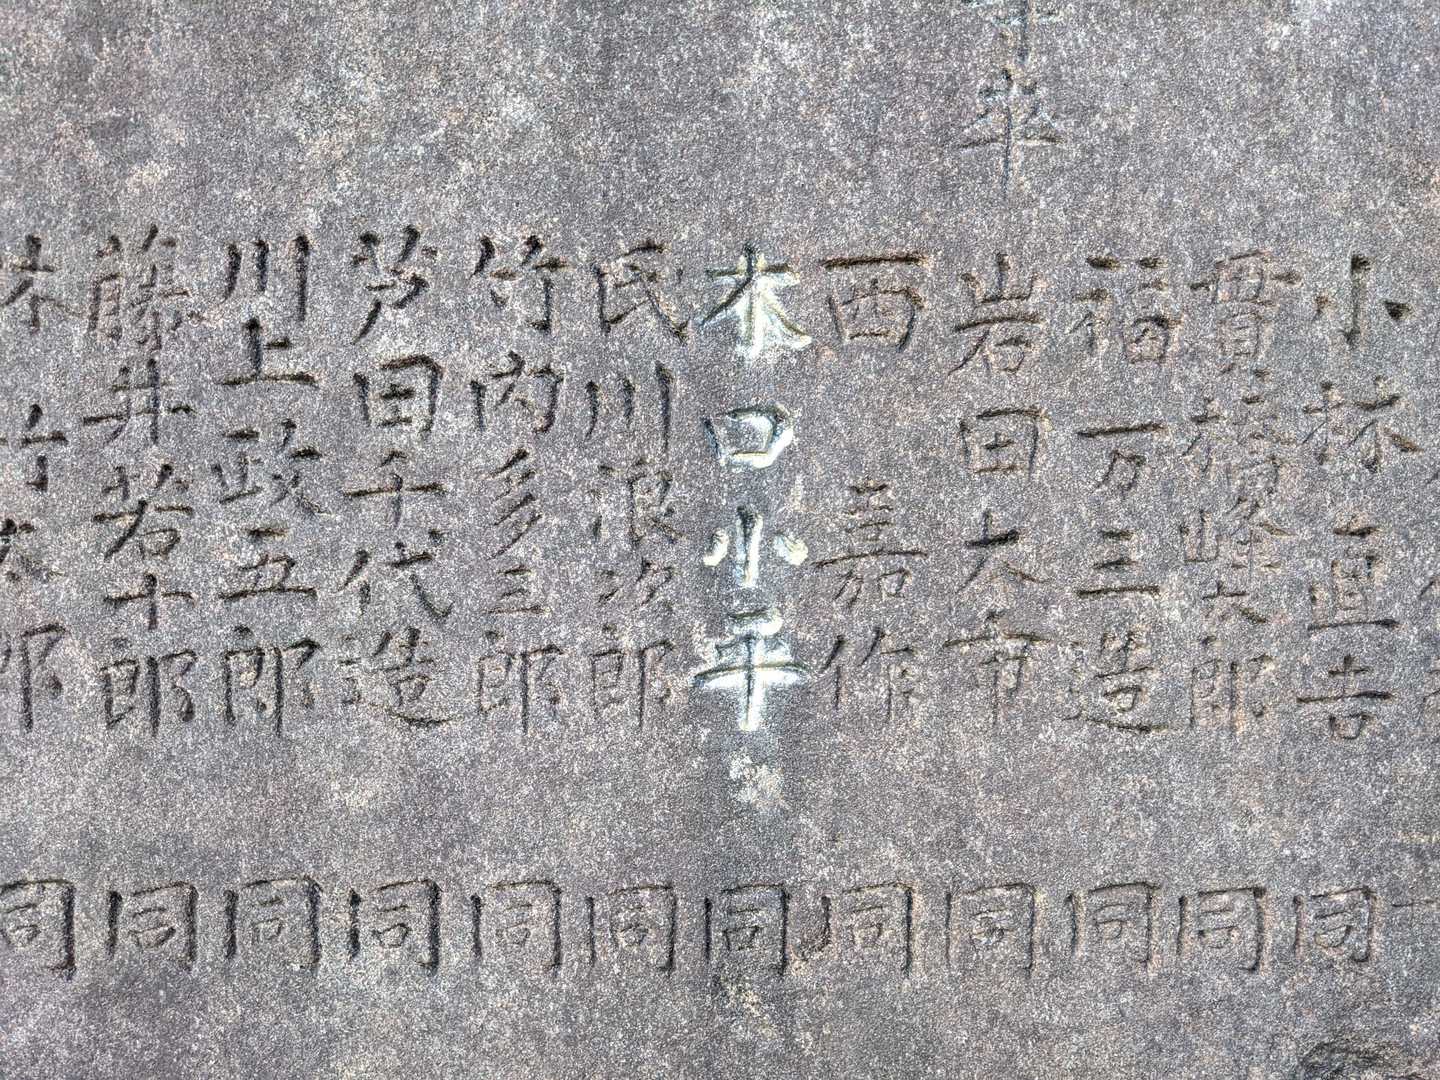 小林亘吉
貫橋峰太郎
福万三造
岩田太市
西嘉作
木口小平
氏川浪次郎
竹内多三郎
芦田千代造
川上政五郎
藤井若十郎
同
同
同
同
同
同
同
同
同
同
同
同